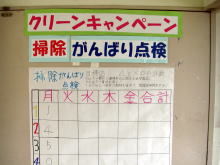 クリーンキャンペーン
掃除 がんばり点検
掃除がんばり
点検
月 火 水 木 金 合計
1
2
3
4